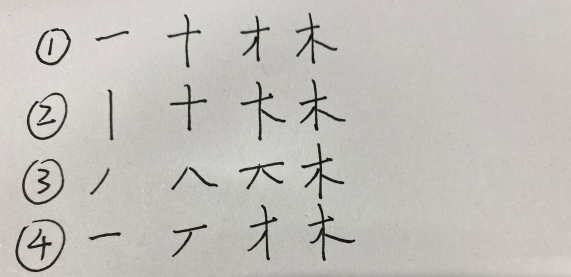 ① 一 十 才 木
② 丨 十 木 木
③ 丿 八 木
④ 一 丆 才 木